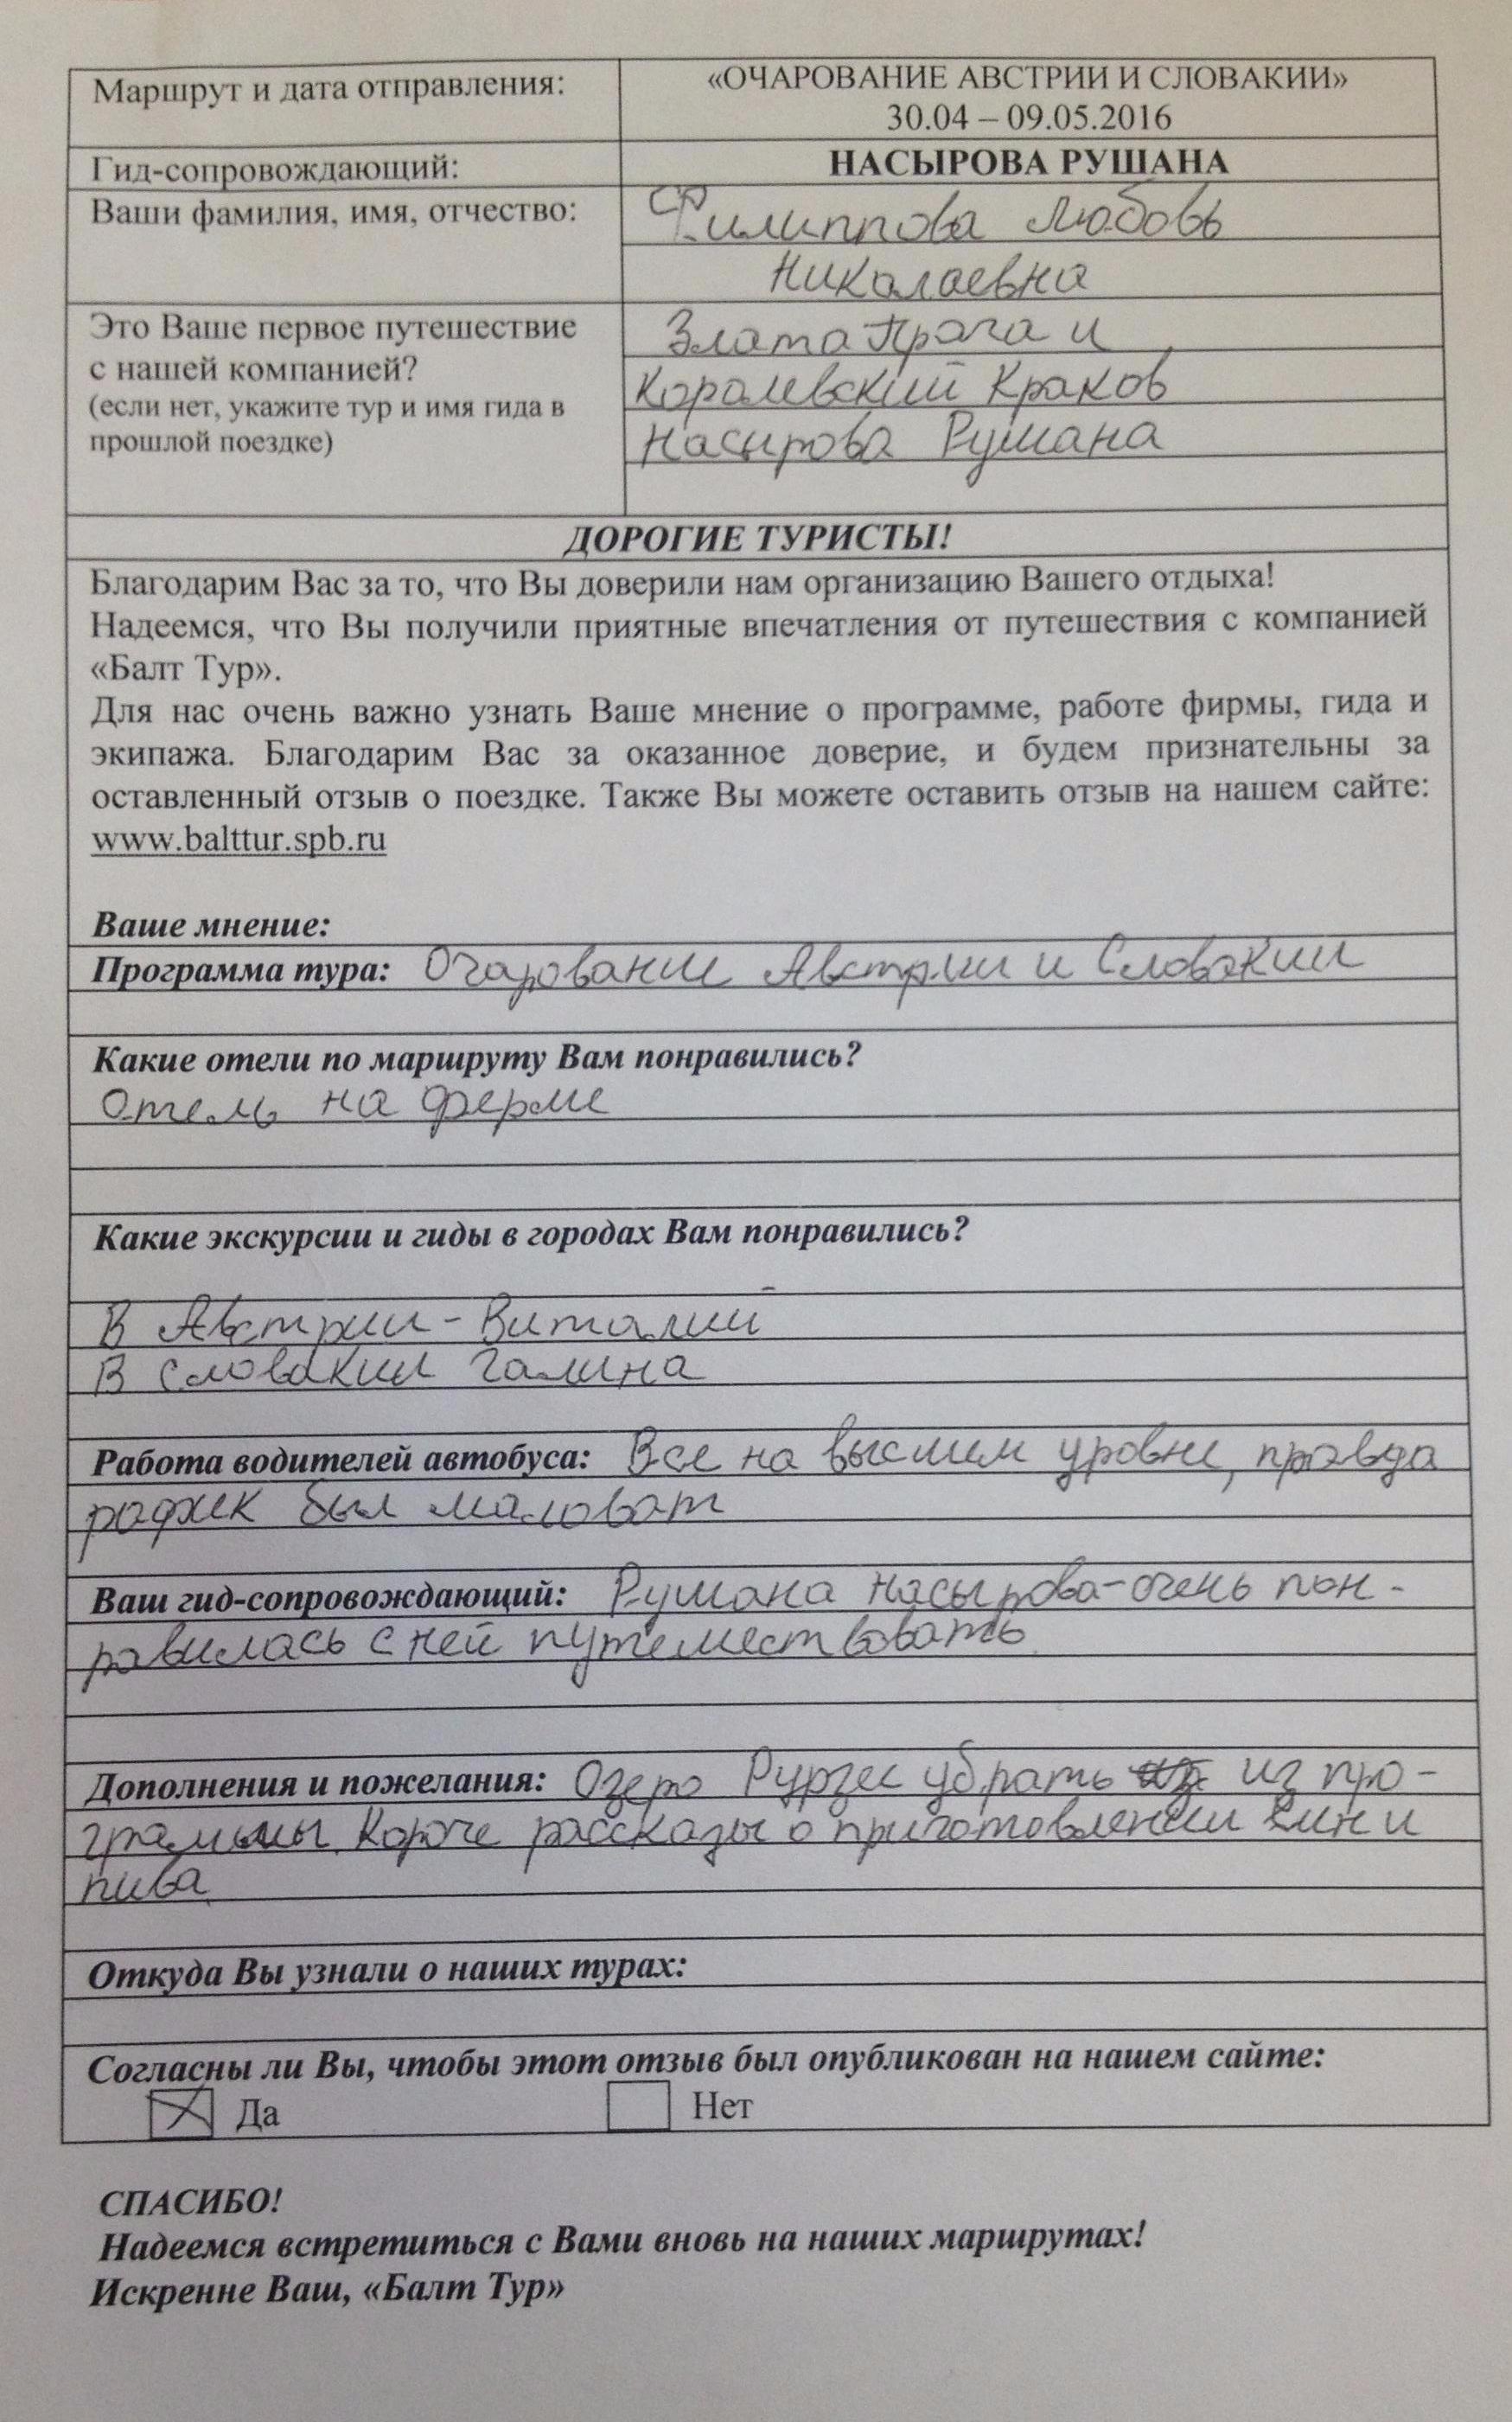 Маршрут и дата отправления:
«ОЧАРОВАНИЕ АВСТРИИ И СЛОВАКИИ»
30.04 – 09.05.2016
Гид-сопровождающий:
НАСЫРОВА РУШАНА
Ваши фамилия, имя, отчество:
Филиппова Любовь
Николаевна
Это Ваше первое путешествие
с нашей компанией?
(если нет, укажите тур и имя гида в
прошлой поездке)
Злата Прага и
Королевский Краков
Насырова Рушана
ДОРОГИЕ ТУРИСТЫ!
Благодарим Вас за то, что Вы доверили нам организацию Вашего отдыха!
Надеемся, что Вы получили приятные впечатления от путешествия с компанией
«Балт Тур».
Для нас очень важно узнать Ваше мнение о программе, работе фирмы, гида и
экипажа. Благодарим Вас за оказанное доверие, и будем признательны за
оставленный отзыв о поездке. Также Вы можете оставить отзыв на нашем сайте:
www.balttur.spb.ru
Ваше мнение:
Программа тура: Очарование Австрии и Словакии
Какие отели по маршруту Вам понравились?
Отель на ферме
Какие экскурсии и гиды в городах Вам понравились?
В Австрии - Виталий
В Словакии Галина
Работа водителей автобуса: Все на высшем уровне, правда
рафик был маловат
Ваш гид-сопровождающий: Рушана Насырова - очень пон-
равилась с ней путешествовать
Дополнения и пожелания: Озеро убрать из про-
граммы. Короче рассказы о приготовлении вин и
пива
Откуда Вы узнали о наших турах:
Согласны ли Вы, чтобы этот отзыв был опубликован на нашем сайте:
Да Нет
СПАСИБО!
Надеемся встретиться с Вами вновь на наших маршрутах!
Искренне Ваш, «Балт Тур»